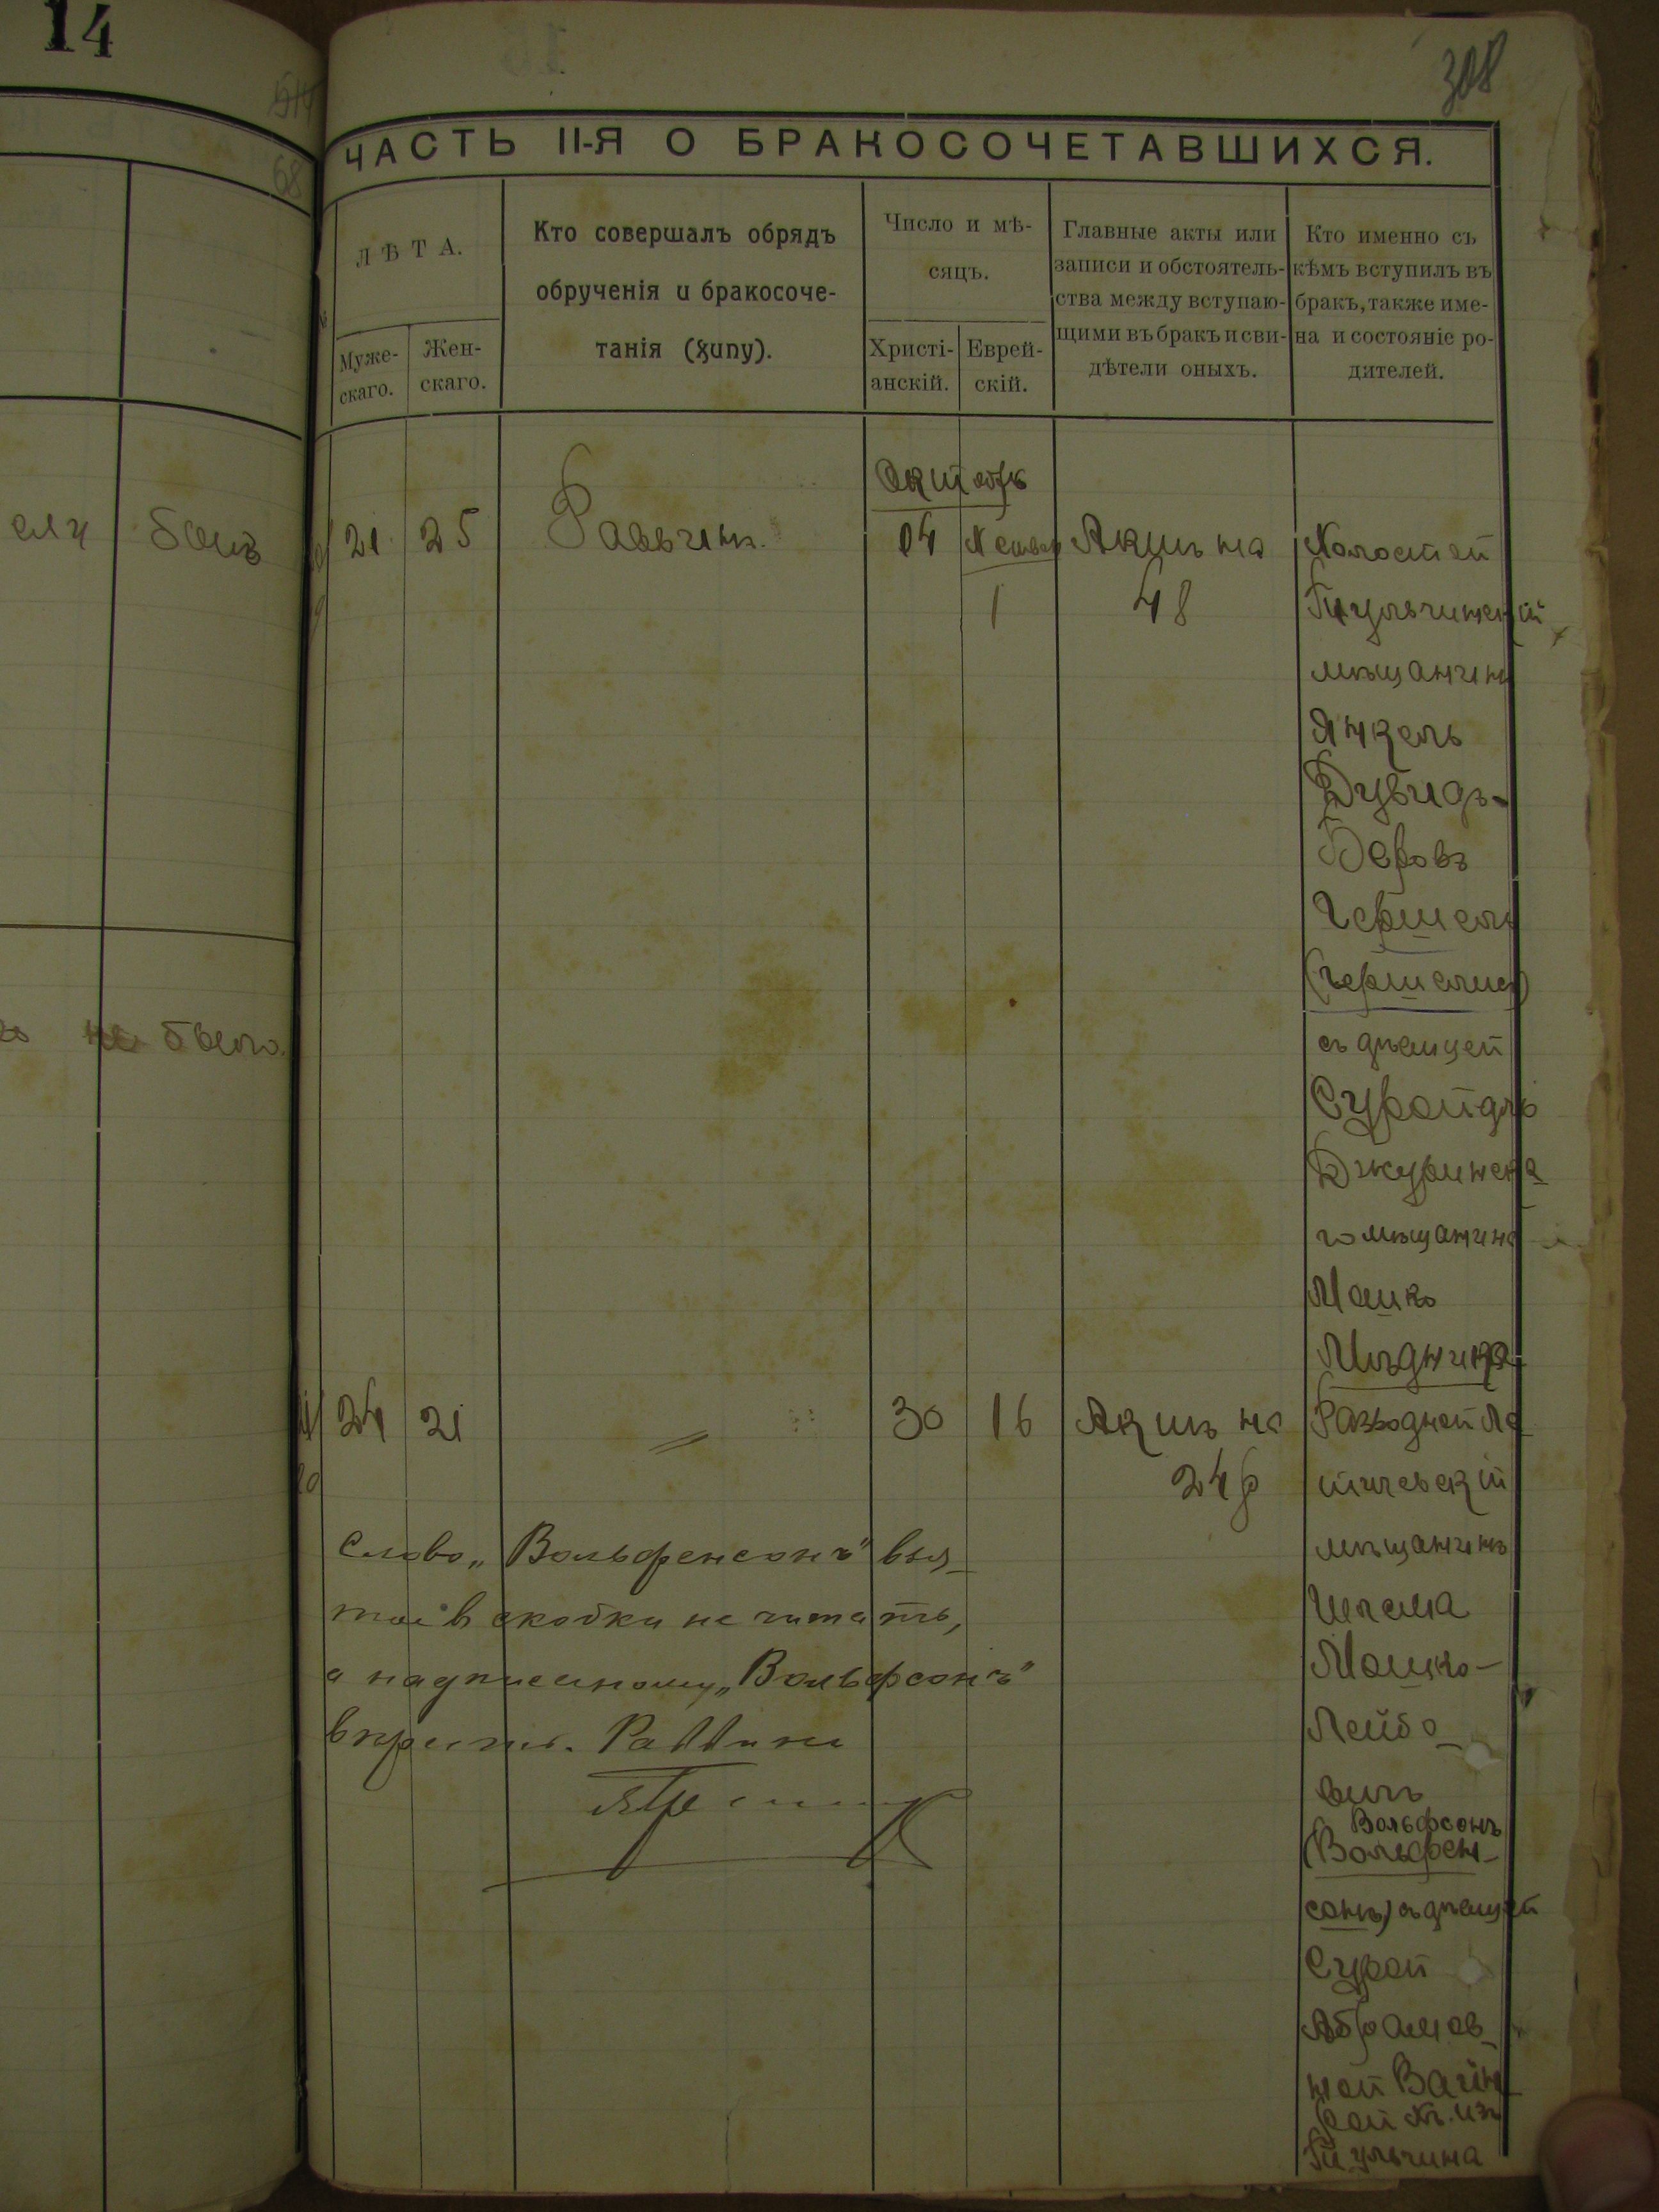 14
308
ЧАСТЬ II-Я О БРАКОСОЧЕТАВШИХСЯ.
ЛѢТА.
Муже-
скаго.
Жен-
скаго.
Кто совершалъ обрядъ
обрученія и бракосоче-
танія (хупу).
Число и мѣ-
сяцъ.
Христі-
анскій.
Еврей-
скій.
Главные акты или
записи и обстоятель-
ства между вступаю-
щими въ бракъ и сви-
дѣтели оныхъ.
Кто именно съ
кѣмъ вступилъ въ
бракъ, также име-
на и состояніе ро-
дителей.
Октобрь
21 25 Раввинъ. 14 1 Актъ на
48
Холостой
Тульчинскій
мѣщанинъ
Янкель
Дувидъ-
Беровъ
Гершель
съ дѣвицей
Сурой
Джуринска-
го мѣщанина
Мошко
Мѣдника
24 21 〃 30 16 Актъ на
248
Разводной Ле-
тичевскій
мѣщанинъ
Шлема
Мошко-
Лейбо-
вичъ
Вольфсонъ
(Вольфен-
сонъ) съ дѣвицей
Сурой
Абрамов-
ной Вайн-
изъ
Тульчина
Слово „Вольфенсонъ" взя-
тое в скобки не читать,
а надписаному „Вольфсонъ"
вѣрить. Раввинъ
былъ
было.